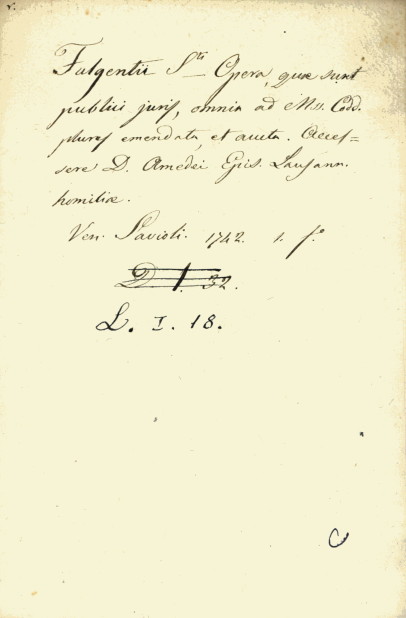 Fulgentii Sti Opera, quæ sunt
publici juris, omnia ad Mss. Codd.
plures emendata, et aucta. Acces=
sere D. Amedei Epis. Lausann.
homiliæ.
Ven. Savioli. 1742. 1. f.º
D. I. 32.
L. I. 18.
C